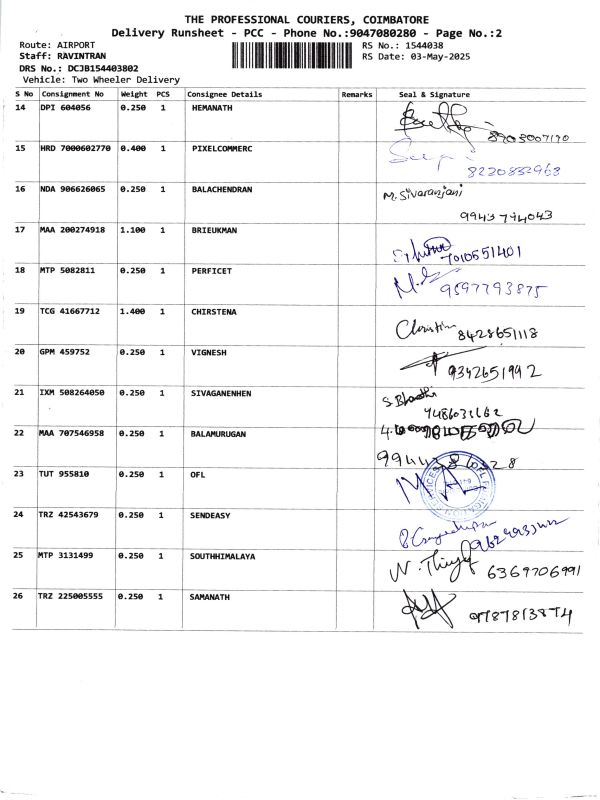 THE PROFESSIONAL COURIERS, COIMBATORE
Delivery Runsheet - PCC - Phone No.:9047080280 - Page No.:2
Route: AIRPORT RS No.: 1544038
Staff: RAVINTRAN RS Date: 03-May-2025
DRS No.: DCJB154403802
Vehicle: Two Wheeler Delivery
S No Consignment No Weight PCS Consignee Details Remarks Seal & Signature
14 DPI 604056 0.250 1 HEMANATH
15 HRD 7000602770 0.400 1 PIXELCOMMERC
8220832963
16 NDA 906626065 0.250 1 BALACHENDRAN M. Sivaranjani
9943794043
17 MAA 200274918 1.100 1 BRIEUKMAN
7010551401
18 MTP 5082811 0.250 1 PERFICET
9597793875
19 TCG 41667712 1.400 1 CHIRSTENA Christin
8428651118
20 GPM 459752 0.250 1 VIGNESH
9342651992
21 IXM 508264050 0.250 1 SIVAGANENHEN
7486031162
22 MAA 707546958 0.250 1 BALAMURUGAN
23 TUT 955810 0.250 1 OFL
24 TRZ 42543679 0.250 1 SENDEASY
25 MTP 3131499 0.250 1 SOUTHHIMALAYA
6369706991
26 TRZ 225005555 0.250 1 SAMANATH
9787813874